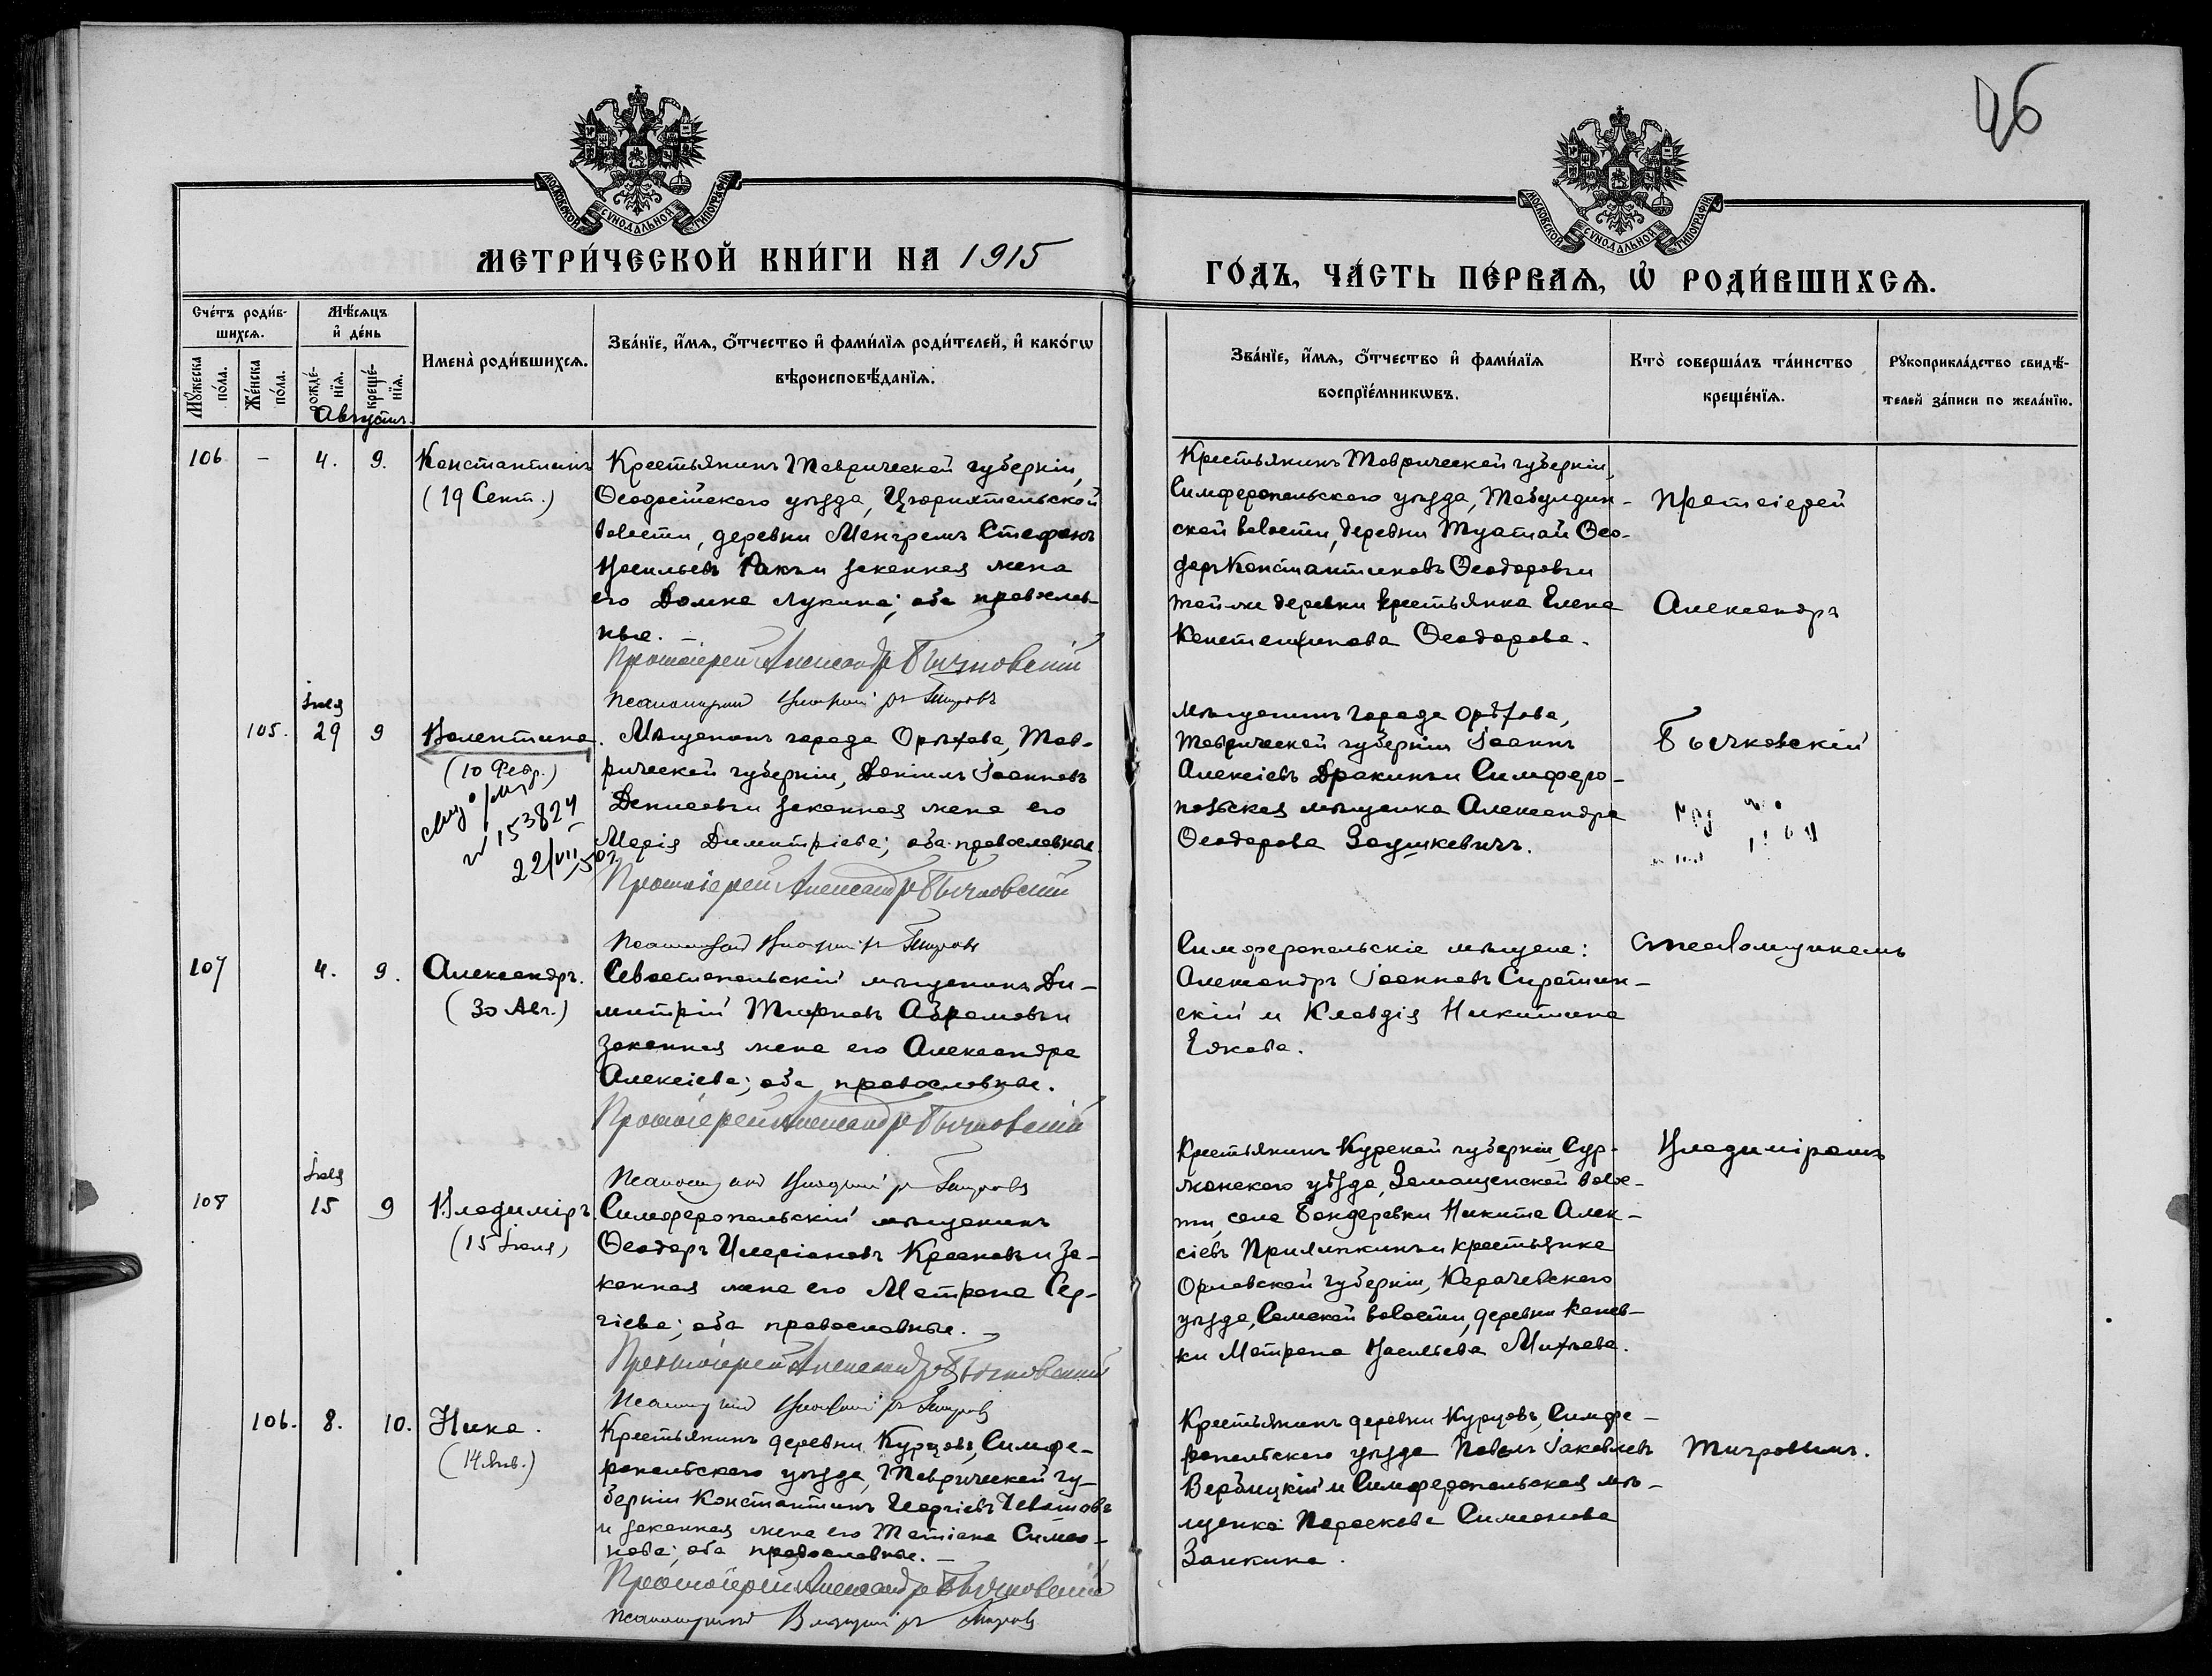 46
МОСКОВСКОЙ СѴНОДАЛЬНОЙ ТИПОГРАФІИ
МЕТРИ́ЧЕСКОЙ КНИ́ГИ НА 1915
МОСКОВСКОЙ СѴНОДАЛЬНОЙ ТИПОГРАФІИ
ГО́ДЪ, ЧА́СТЬ ПЕ́РВАѦ, Ѡ РОДИ́ВШИХСѦ.
Сче́тъ роди́в-
шихсѧ.
Мѣ́сѧцъ
и҆ де́нь
Мꙋ́жеска по́ла.
Же́нска по́ла.
рожде́-нїѧ.
креще́-нїѧ.
Имена̀ роди́вшихсѧ.
Зва́нїе, и҆́мѧ, ѻ҆́тчество и҆ фами́лїѧ роди́телей, и҆ како́гѡ
вѣроисповѣ́данїѧ.
Зва́нїе, и҆́мѧ, ѻ҆́тчество и҆ фами́лїѧ
воспрїе́мникѡвъ.
Кто̀ соверша́лъ та́инство
креще́нїѧ.
Рꙋкоприкла́дство свидѣ́-
телей за́писи по жела́нїю.
Августъ
106 - 4. 9. Константинъ
(19 Сент.)
Крестьянинъ Таврической губерніи,
Ѳеодосійскаго уѣзда, Цюрихтальской
волости, деревни Менгремъ Стефанъ
Васильевъ и законная жена
его Домна Лукина; оба православ-
ные. —
Протоіерей Александръ Бычковскій
Псаломщикъ Владиміръ Тигровъ
Крестьянинъ Таврической губерніи,
Симферопольскаго уѣзда, Табулдин-
ской волости, деревни Туатай Ѳео-
доръ Константиновъ Ѳеодоровъ и
той же деревни крестьянка Елена
Константинова Ѳеодорова.
Протоіерей
Александръ
Бычковскій
съ псаломщикомъ
Владиміромъ
Тигровымъ.
Іюля
105. 29 9 Валентина.
(10 Февр.)
N 153824
22/VII 50г
Мѣщанинъ города Орѣхова, Тав-
рической губерніи, Даніилъ Іоанновъ
Денисовъ и законная жена его
Марія Димитріева; оба православные.
Протоіерей Александръ Бычковскій
Псаломщикъ Владиміръ Тигровъ
Мѣщанинъ города Орѣхова,
Таврической губерніи Іоаннъ
Алексіевъ Дракинъ и Симферо-
польская мѣщанка Александра
Ѳеодорова Заушкевичъ.
107 4. 9. Александръ.
(30 Авг.)
Севастопольскій мѣщанинъ Ди-
митрій Тихоновъ Абрамовъ и
законная жена его Александра
Алексіева; оба православные.
Протоіерей Александръ Бычковскій
Псаломщикъ Владиміръ Тигровъ
Симферопольскіе мѣщане:
Александръ Іоанновъ Сиротин-
скій и Клавдія Никитина
Ежова.
Іюля
108 15 9 Владиміръ.
(15 Іюля)
Симферопольскій мѣщанинъ
Ѳеодоръ Иларіоновъ Красновъ и за-
конная жена его Матрона Сер-
гіева; оба православные. —
Протоіерей Александръ Бычковскій
Псаломщикъ Владиміръ Тигровъ
Крестьянинъ Курской губерніи, Суд-
жанскаго уѣзда, Замощенской волос-
ти, села Бондаревки Никита Алек-
сіевъ Прилипкинъ и крестьянка
Орловской губерніи, Карачевскаго
уѣзда, волости, деревни
Матрона Васильева Михѣева.
106. 8. 10. Нина.
(14 Янв.)
Крестьянинъ деревни Курцовъ, Симфе-
ропольскаго уѣзда, Таврической гу-
берніи Константинъ Георгіевъ
и законная жена его Татіана Симео-
нова; оба православные. —
Протоіерей Александръ Бычковскій
Псаломщикъ Владиміръ Тигровъ
Крестьянинъ деревни Курцовъ, Симфе-
ропольскаго уѣзда Павелъ Іаковлевъ
Вербицкій и Симферопольская мѣ-
щанка Параскева Симеонова
Заикина.